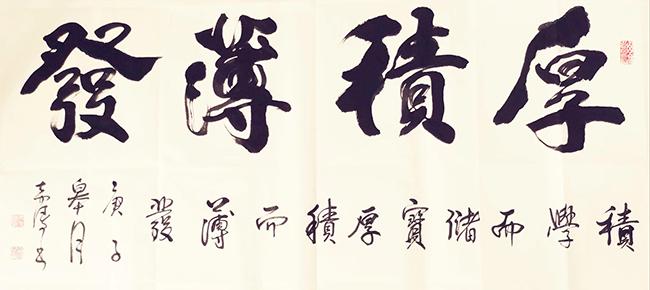 厚積薄發
積學而儲寶厚積而薄發
庚子
皋月